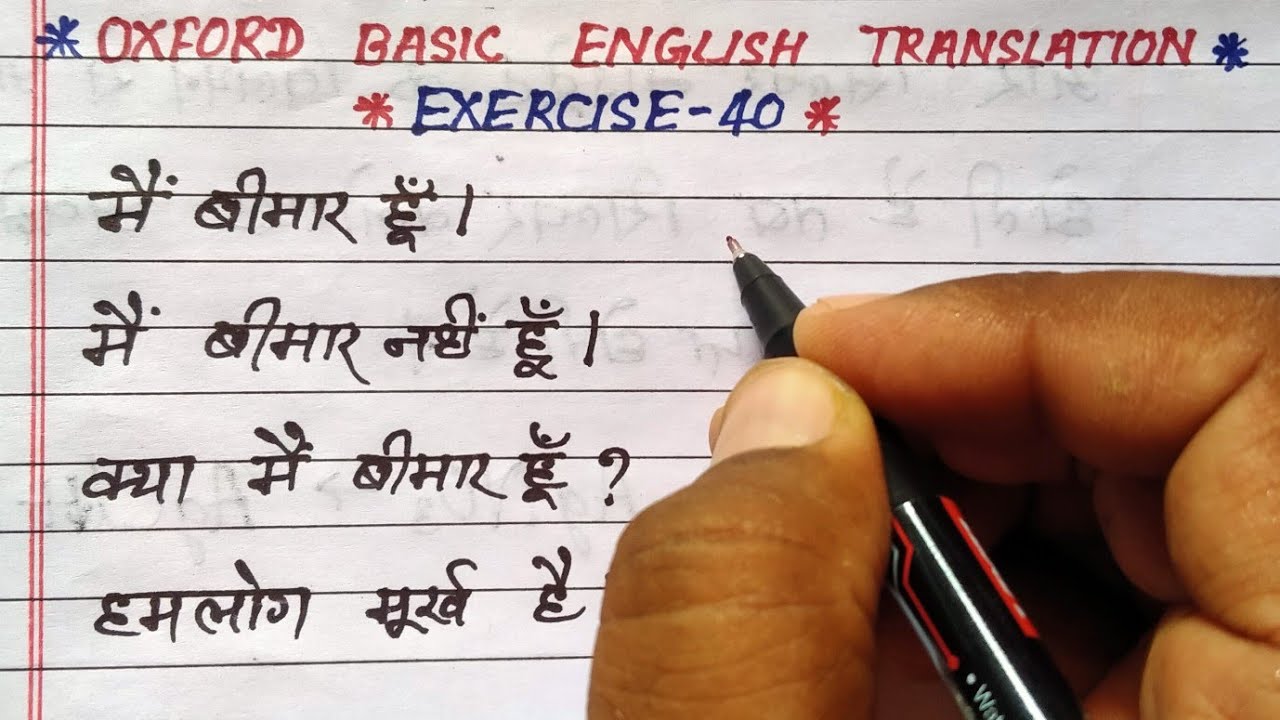 * OXFORD BASIC ENGLISH TRANSLATION *
* EXERCISE-40 *
मैं बीमार हूँ।
मैं बीमार नहीं हूँ।
क्या मैं बीमार हूँ ?
हमलोग मूर्ख है